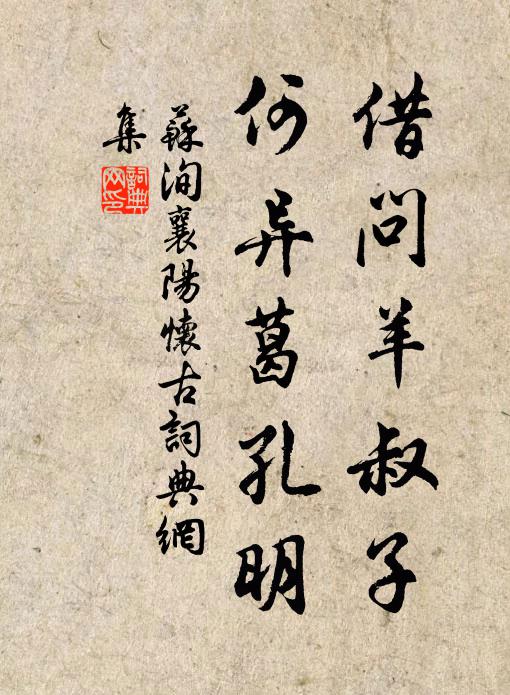 借问羊叔子
何异葛孔明
蘇洵襄陽懷古詞典網
集
詞典
网印